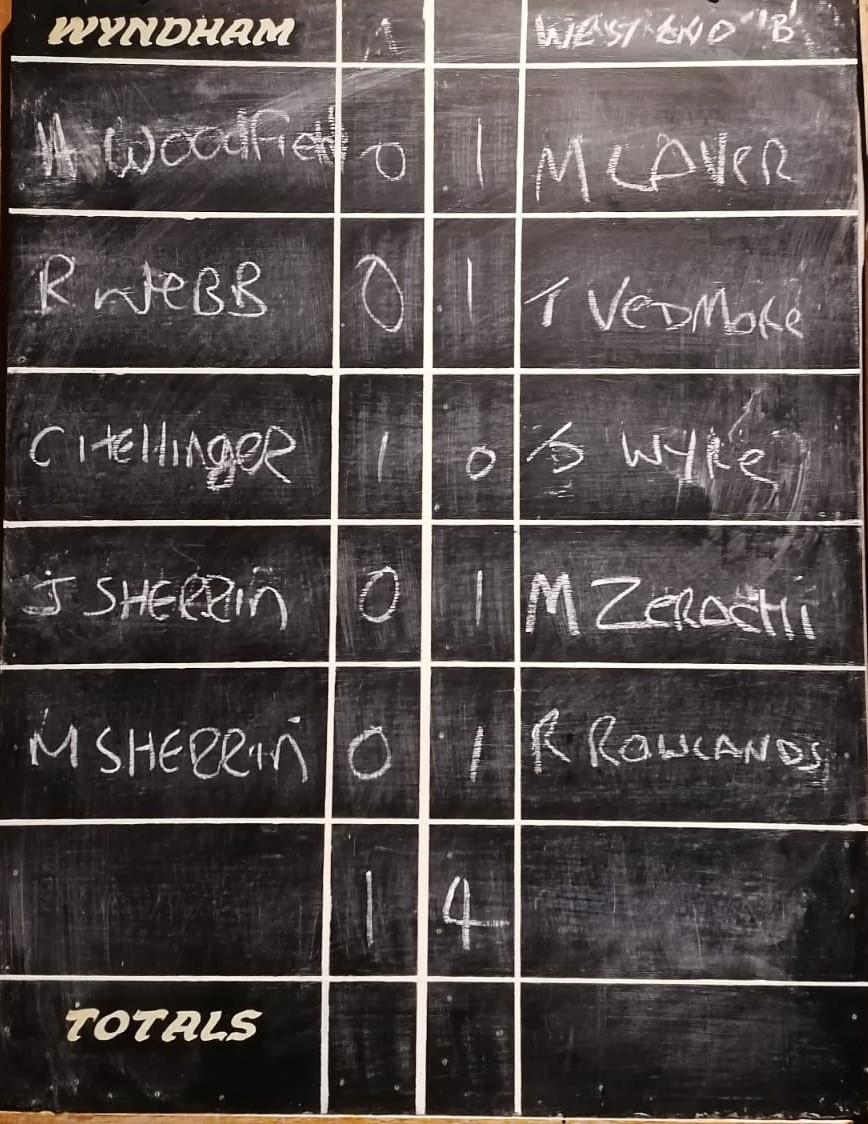 WYNDHAM A WEST END "B"
A WOODFIELD 0 1 M LAVER
R WEBB 0 1 T VEDMORE
C HELLINGER 1 0 S WYKE
J SHERRIN 0 1 M ZERAFHI
M SHERRIN 0 1 R ROWLANDS
1 4
TOTALS